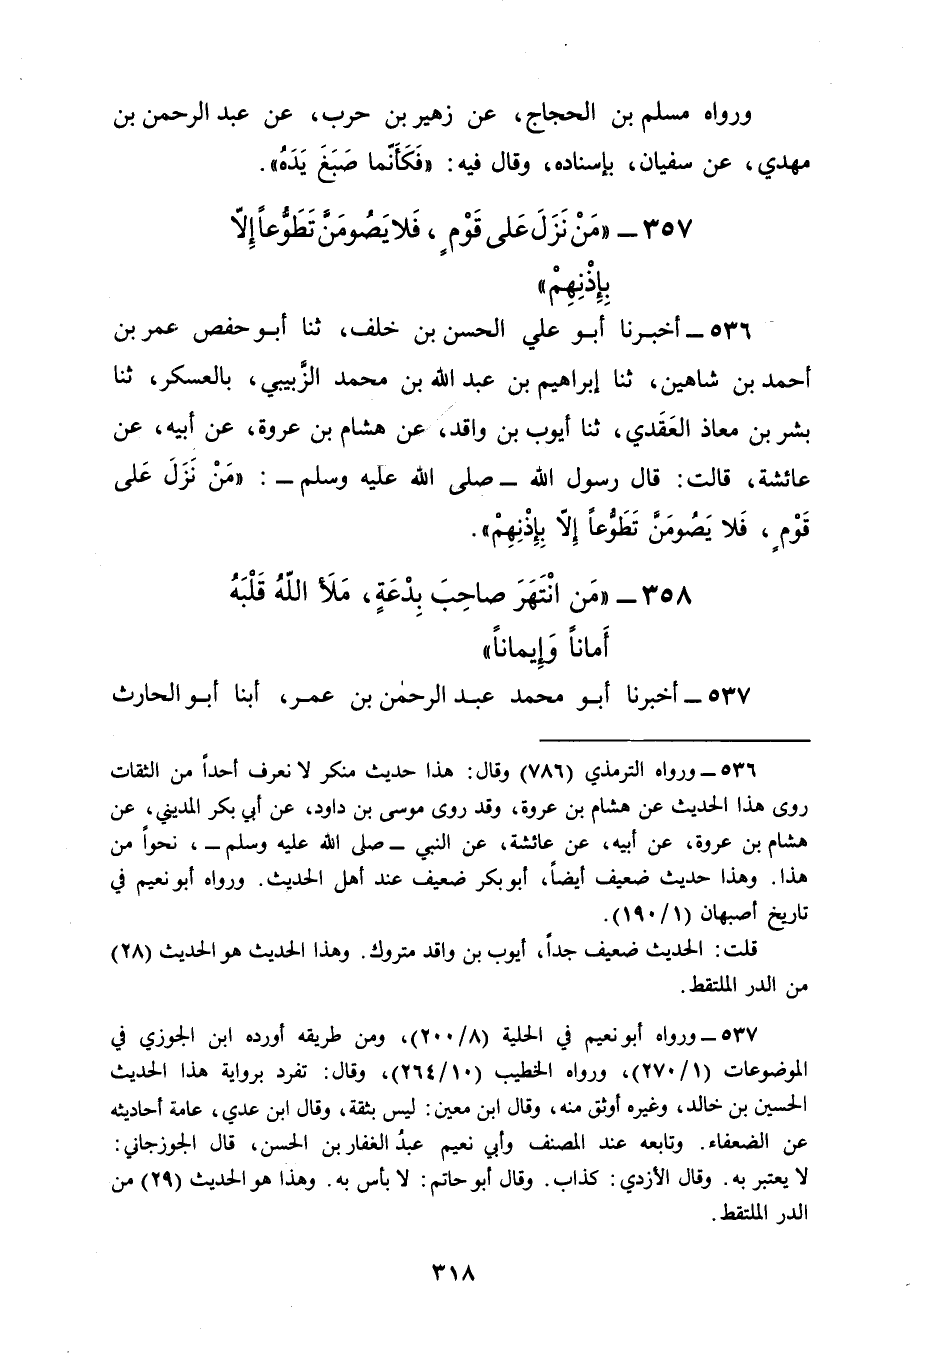 ورواه مسلم بن الحجاج، عن زهير بن حرب، عن عبد الرحمن بن
مهدي، عن سفيان، بإسناده، وقال فيه: «فَكَأَنَّما صَبَغَ يَدَهُ».
٣٥٧ ــ «مَنْ نَزَلَ عَلى قَوْمٍ، فَلا يَصُومَنَّ تَطَوُّعاً إِلّا
بِإِذْنِهِمْ»
٥٣٦ ــ أخبرنا أبو علي الحسن بن خلف، ثنا أبو حفص عمر بن
أحمد بن شاهين، ثنا إبراهيم بن عبد الله بن محمد الزَّبيبي، بالعسكر، ثنا
بشر بن معاذ العَقَدي، ثنا أيوب بن واقد، عن هشام بن عروة، عن أبيه، عن
عائشة، قالت: قال رسول الله ــ صلى الله عليه وسلم ــ: «مَنْ نَزَلَ عَلى
قَوْمٍ، فَلا يَصُومَنَّ تَطَوُّعاً إِلّا بِإِذْنِهِمْ».
٣٥٨ ــ «مَن انْتَهَرَ صاحِبَ بِدْعَةٍ، مَلَأَ اللّهُ قَلْبَهُ
أَماناً وَإِيماناً»
٥٣٧ ــ أخبرنا أبو محمد عبد الرحمٰن بن عمر، أبنا أبو الحارث
٥٣٦ ــ ورواه الترمذي (٧٨٦) وقال: هذا حديث منكر لا نعرف أحداً من الثقات
روى هذا الحديث عن هشام بن عروة، وقد روى موسى بن داود، عن أبي بكر المديني، عن
هشام بن عروة، عن أبيه، عن عائشة، عن النبي ــ صلى الله عليه وسلم ــ، نحواً من
هذا. وهذا حديث ضعيف أيضاً، أبو بكر ضعيف عند أهل الحديث. ورواه أبو نعيم في
تاريخ أصبهان (١/١٩٠).
قلت: الحديث ضعيف جداً، أيوب بن واقد متروك. وهذا الحديث هو الحديث (٢٨)
من الدر الملتقط.
٥٣٧ ــ ورواه أبو نعيم في الحلية (٨/٢٠٠)، ومن طريقه أورده ابن الجوزي في
الموضوعات (١/٢٧٠)، ورواه الخطيب (١٠/٢٦٤)، وقال: تفرد برواية هذا الحديث
الحسين بن خالد، وغيره أوثق منه، وقال ابن معين: ليس بثقة، وقال ابن عدي، عامة أحاديثه
عن الضعفاء. وتابعه عند المصنف وأبي نعيم عبدُ الغفار بن الحسن، قال الجوزجاني:
لا يعتبر به. وقال الأزدي: كذاب. وقال أبو حاتم: لا بأس به. وهذا هو الحديث (٢٩) من
الدر الملتقط.
٣١٨